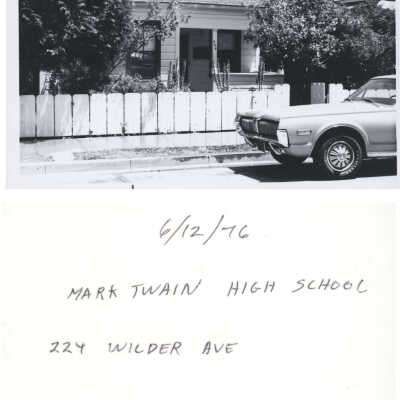 6/12/76
MARK TWAIN HIGH SCHOOL
224 WILDER AVE